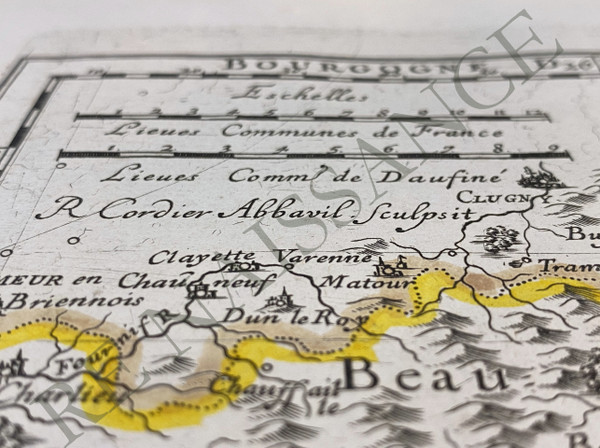 BOURGOGNE
Eschelles
1 2 3 4 5 6 7 8 9 10 11 12
Lieues Communes de France
1 2 3 4 5 6 7 8 9
Lieues Comm.s de Daufiné
R Cordier Abbavil. Sculpsit
CLUGNY
Clayette Varenne
Tram
MEUR en Chau neuf Matour
Briennois
Dun le Roy
Charlieu Chauffaille
Beau
RENAISSANCE